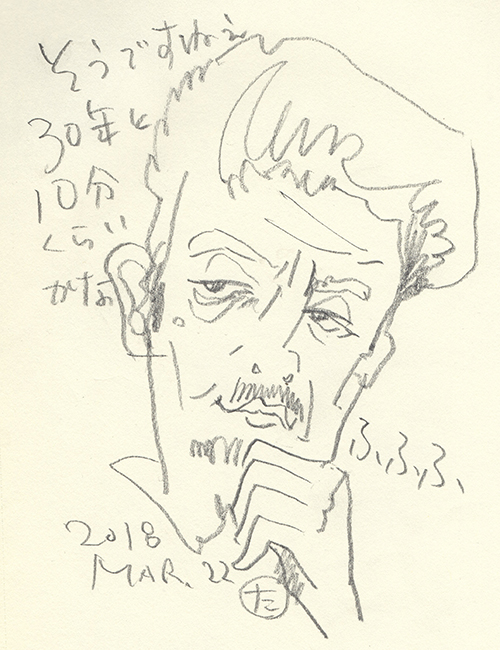 そうですねぇ
30年と
10分
くらい
かな
ふ、ふ、ふ、
2018
MAR. 22
た